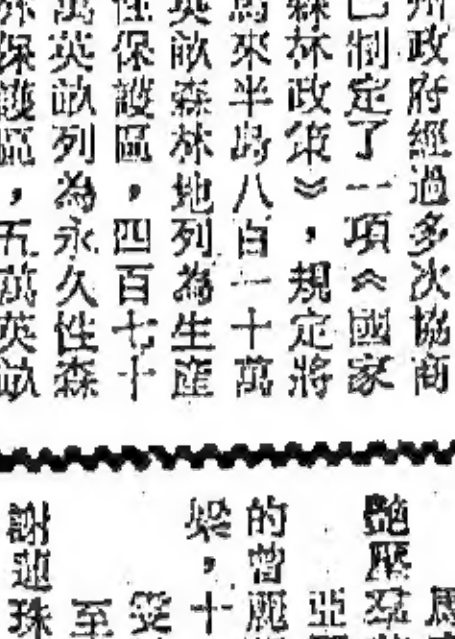 州政府經過多次協商
已制定了一項《國家
森林政策》，規定將
馬來半島八百一十萬
英畝森林地列為生產
性保護區，四百七十
萬英畝列為永久性森
林保護區，五萬英畝
艷壓羣
亞
的曾
，十
至
謝
珠